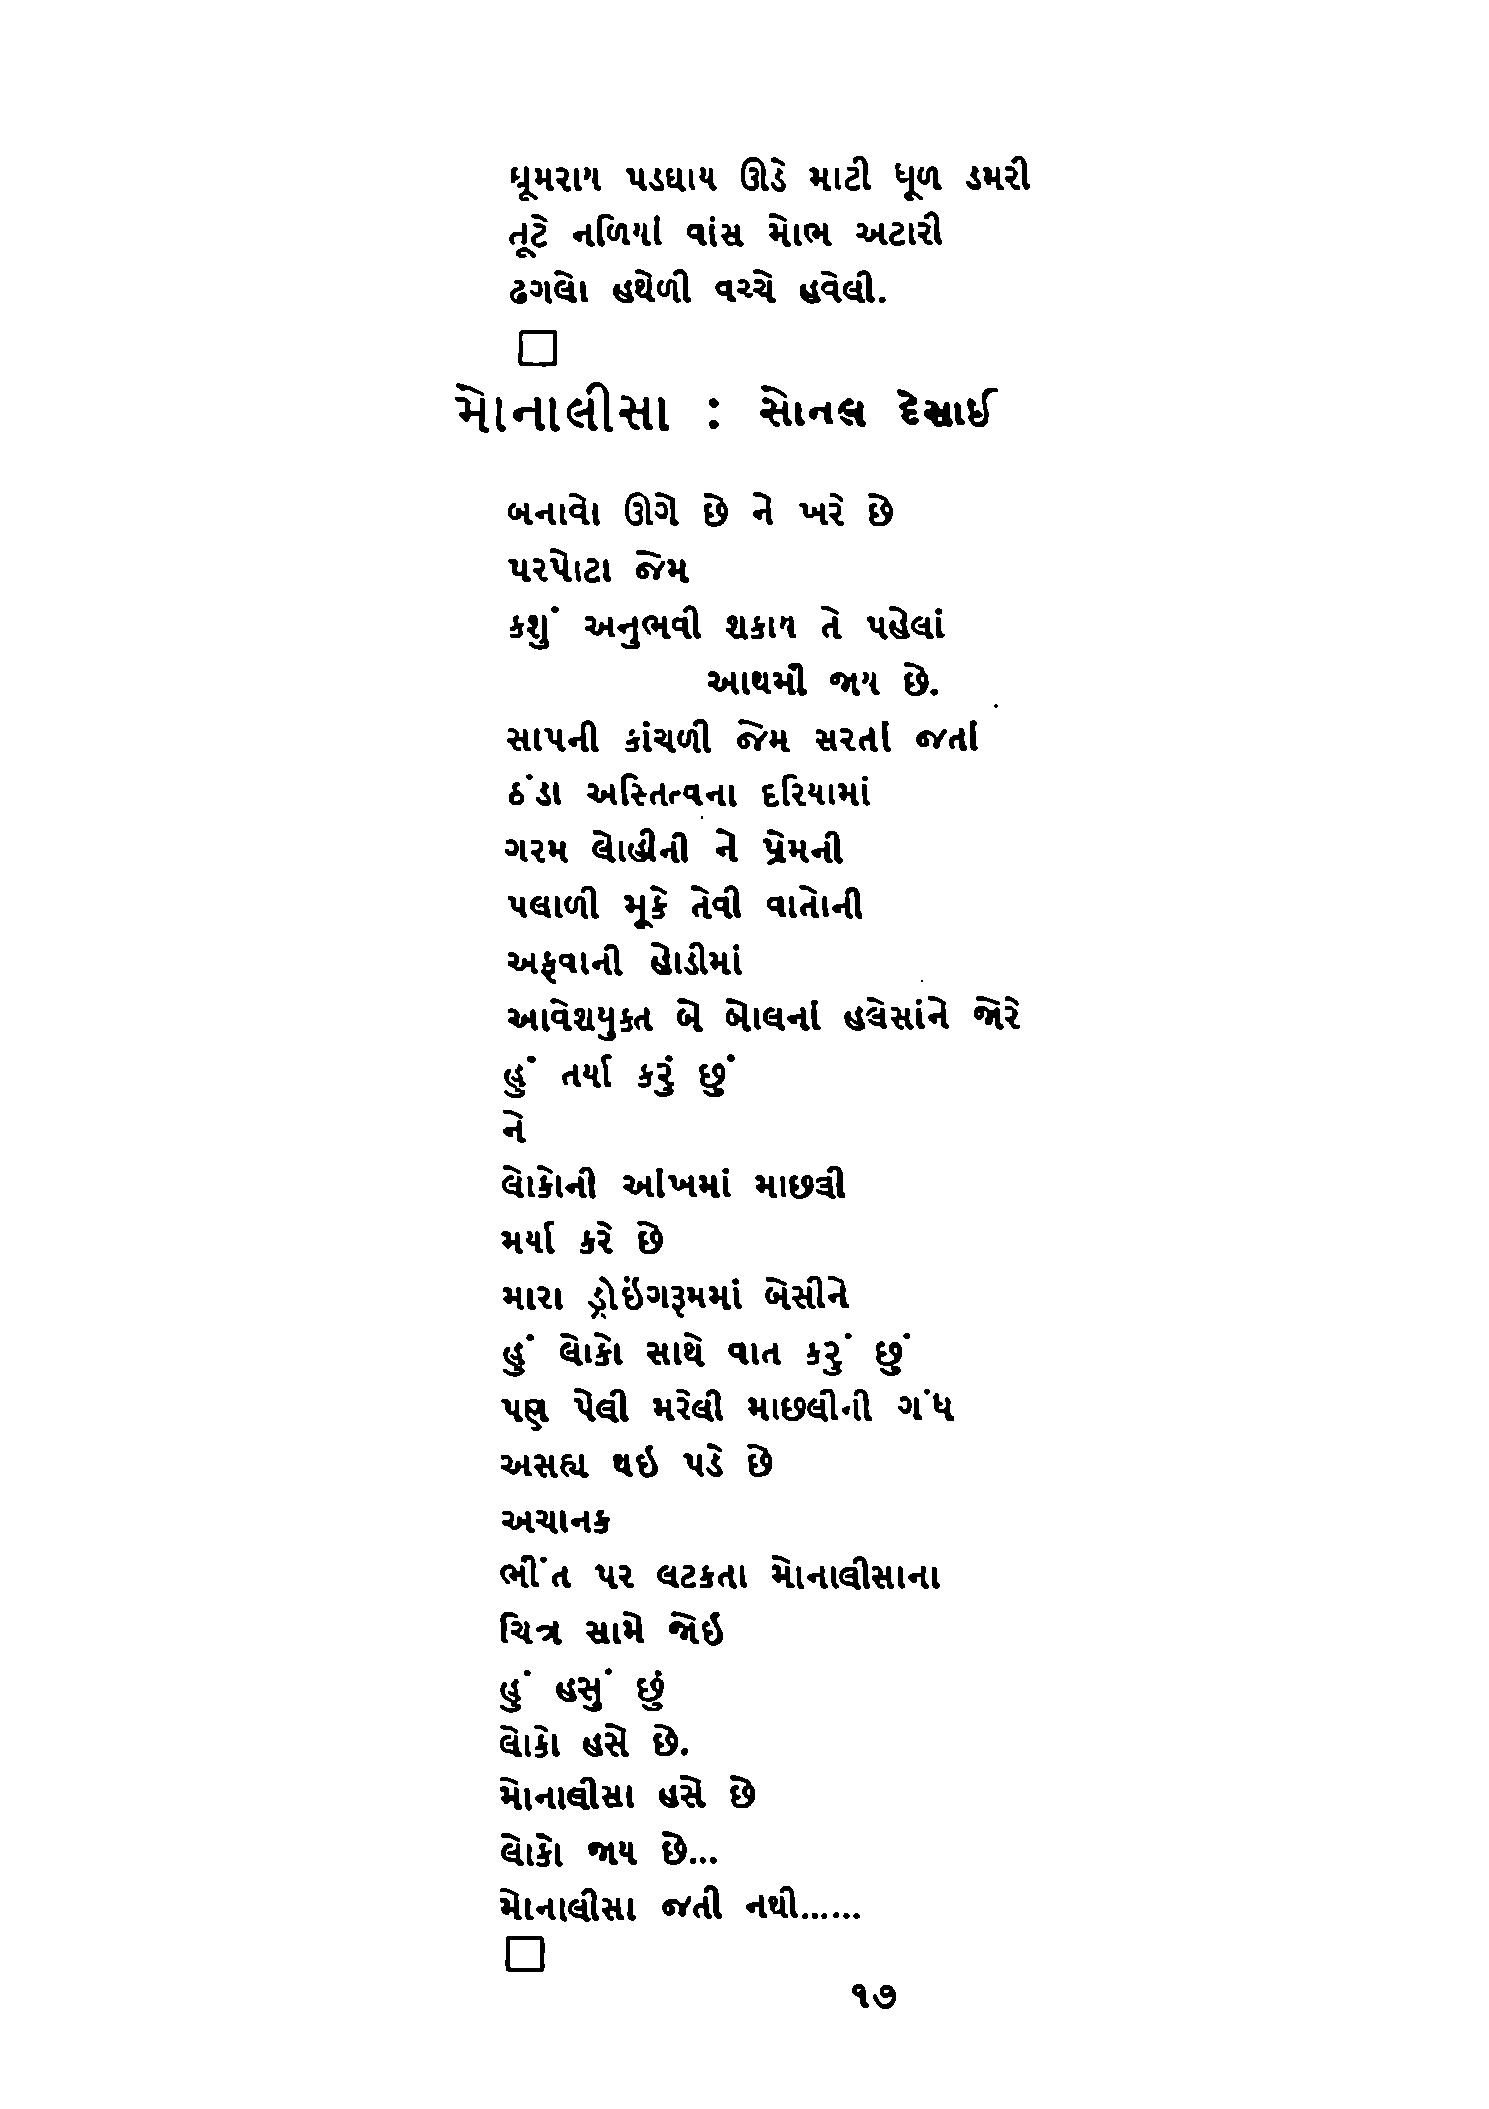 ધૂમરાય પડઘાય ઊડે માટી ધૂળ ડમરી
તૂટે નળિયાં વાંસ મોભ અટારી
ઢગલો હથેળી વચ્ચે હવેલી.
મોનાલીસા : સોનલ દેસાઈ
બનાવો ઊગે છે ને ખરે છે
પરપોટા જેમ
કશું અનુભવી શકાય તે પહેલાં
આથમી જાય છે.
સાપની કાંચળી જેમ સરતાં જતાં
ઠંડા અસ્તિત્વના દરિયામાં
ગરમ લોહીની ને પ્રેમની
પલાળી મૂકે તેવી વાતોની
અફવાની હોડીમાં
આવેશયુક્ત બે બોલનાં હલેસાંને જોરે
હું તર્યા કરું છું
ને
લોકોની આંખમાં માછલી
મર્યા કરે છે
મારા ડ્રોઇંગરૂમમાં બેસીને
હું લોકો સાથે વાત કરું છું
પણ પેલી મરેલી માછલીની ગંધ
અસહ્ય થઇ પડે છે
અચાનક
ભીંત પર લટકતા મોનાલીસાના
ચિત્ર સામે જોઇ
હું હસું છું
લોકો હસે છે.
મોનાલીસા હસે છે
લોકો જાય છે...
મોનાલીસા જતી નથી......
૧૭